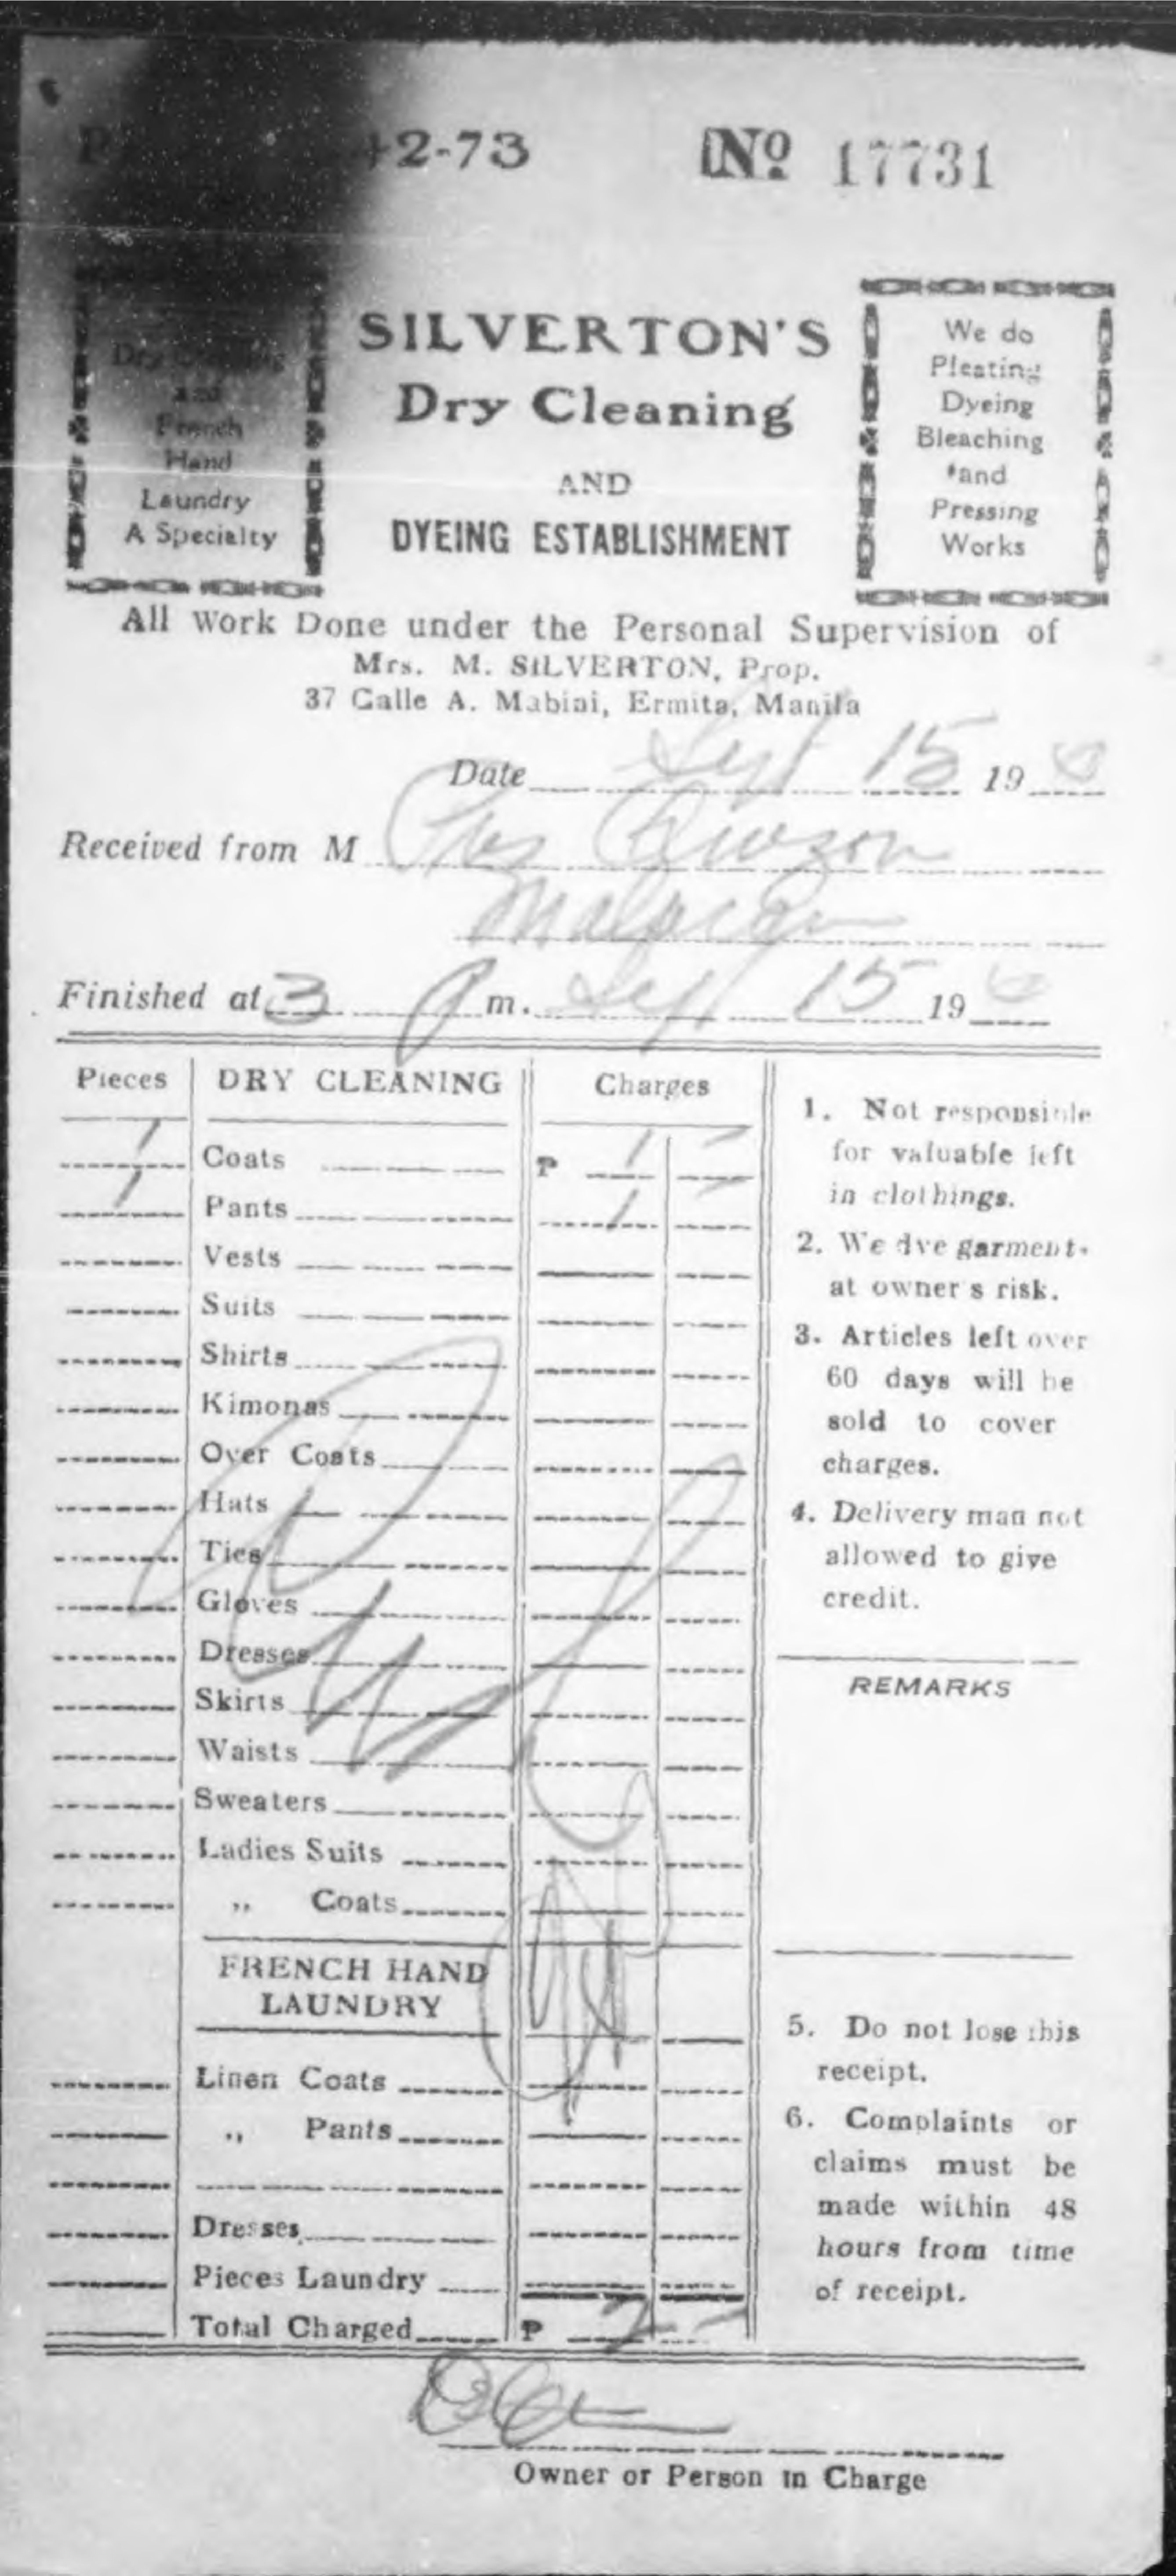 2-73 No 17731
Dry Cleaning
and
French
Hand
Laundry
A Specialty
SILVERTON'S
Dry Cleaning
AND
DYEING ESTABLISHMENT
We do
Pleating
Dyeing
Bleaching
and
Pressing
Works
All Work Done under the Personal Supervision of
Mrs. M. SILVERTON, Prop.
37 Calle A. Mabini, Ermita, Manila
Date Sept 15 19
Received from M
Finished at 3 P m. Sept 15 19
Pieces DRY CLEANING Charges
1 Coats ₱ 1 –
1 Pants 1
Vests
Suits
Shirts
Kimonas
Over Coats
Hats
Ties
Gloves
Dresses
Skirts
Waists
Sweaters
Ladies Suits
„ Coats
FRENCH HAND
LAUNDRY
Linen Coats
„ Pants
Dresses
Pieces Laundry
Total Charged ₱ 2 –
1. Not responsible
for valuable left
in clothings.
2. We dye garments
at owner's risk.
3. Articles left over
60 days will be
sold to cover
charges.
4. Delivery man not
allowed to give
credit.
REMARKS
5. Do not lose this
receipt.
6. Complaints or
claims must be
made within 48
hours from time
of receipt.
Owner or Person in Charge